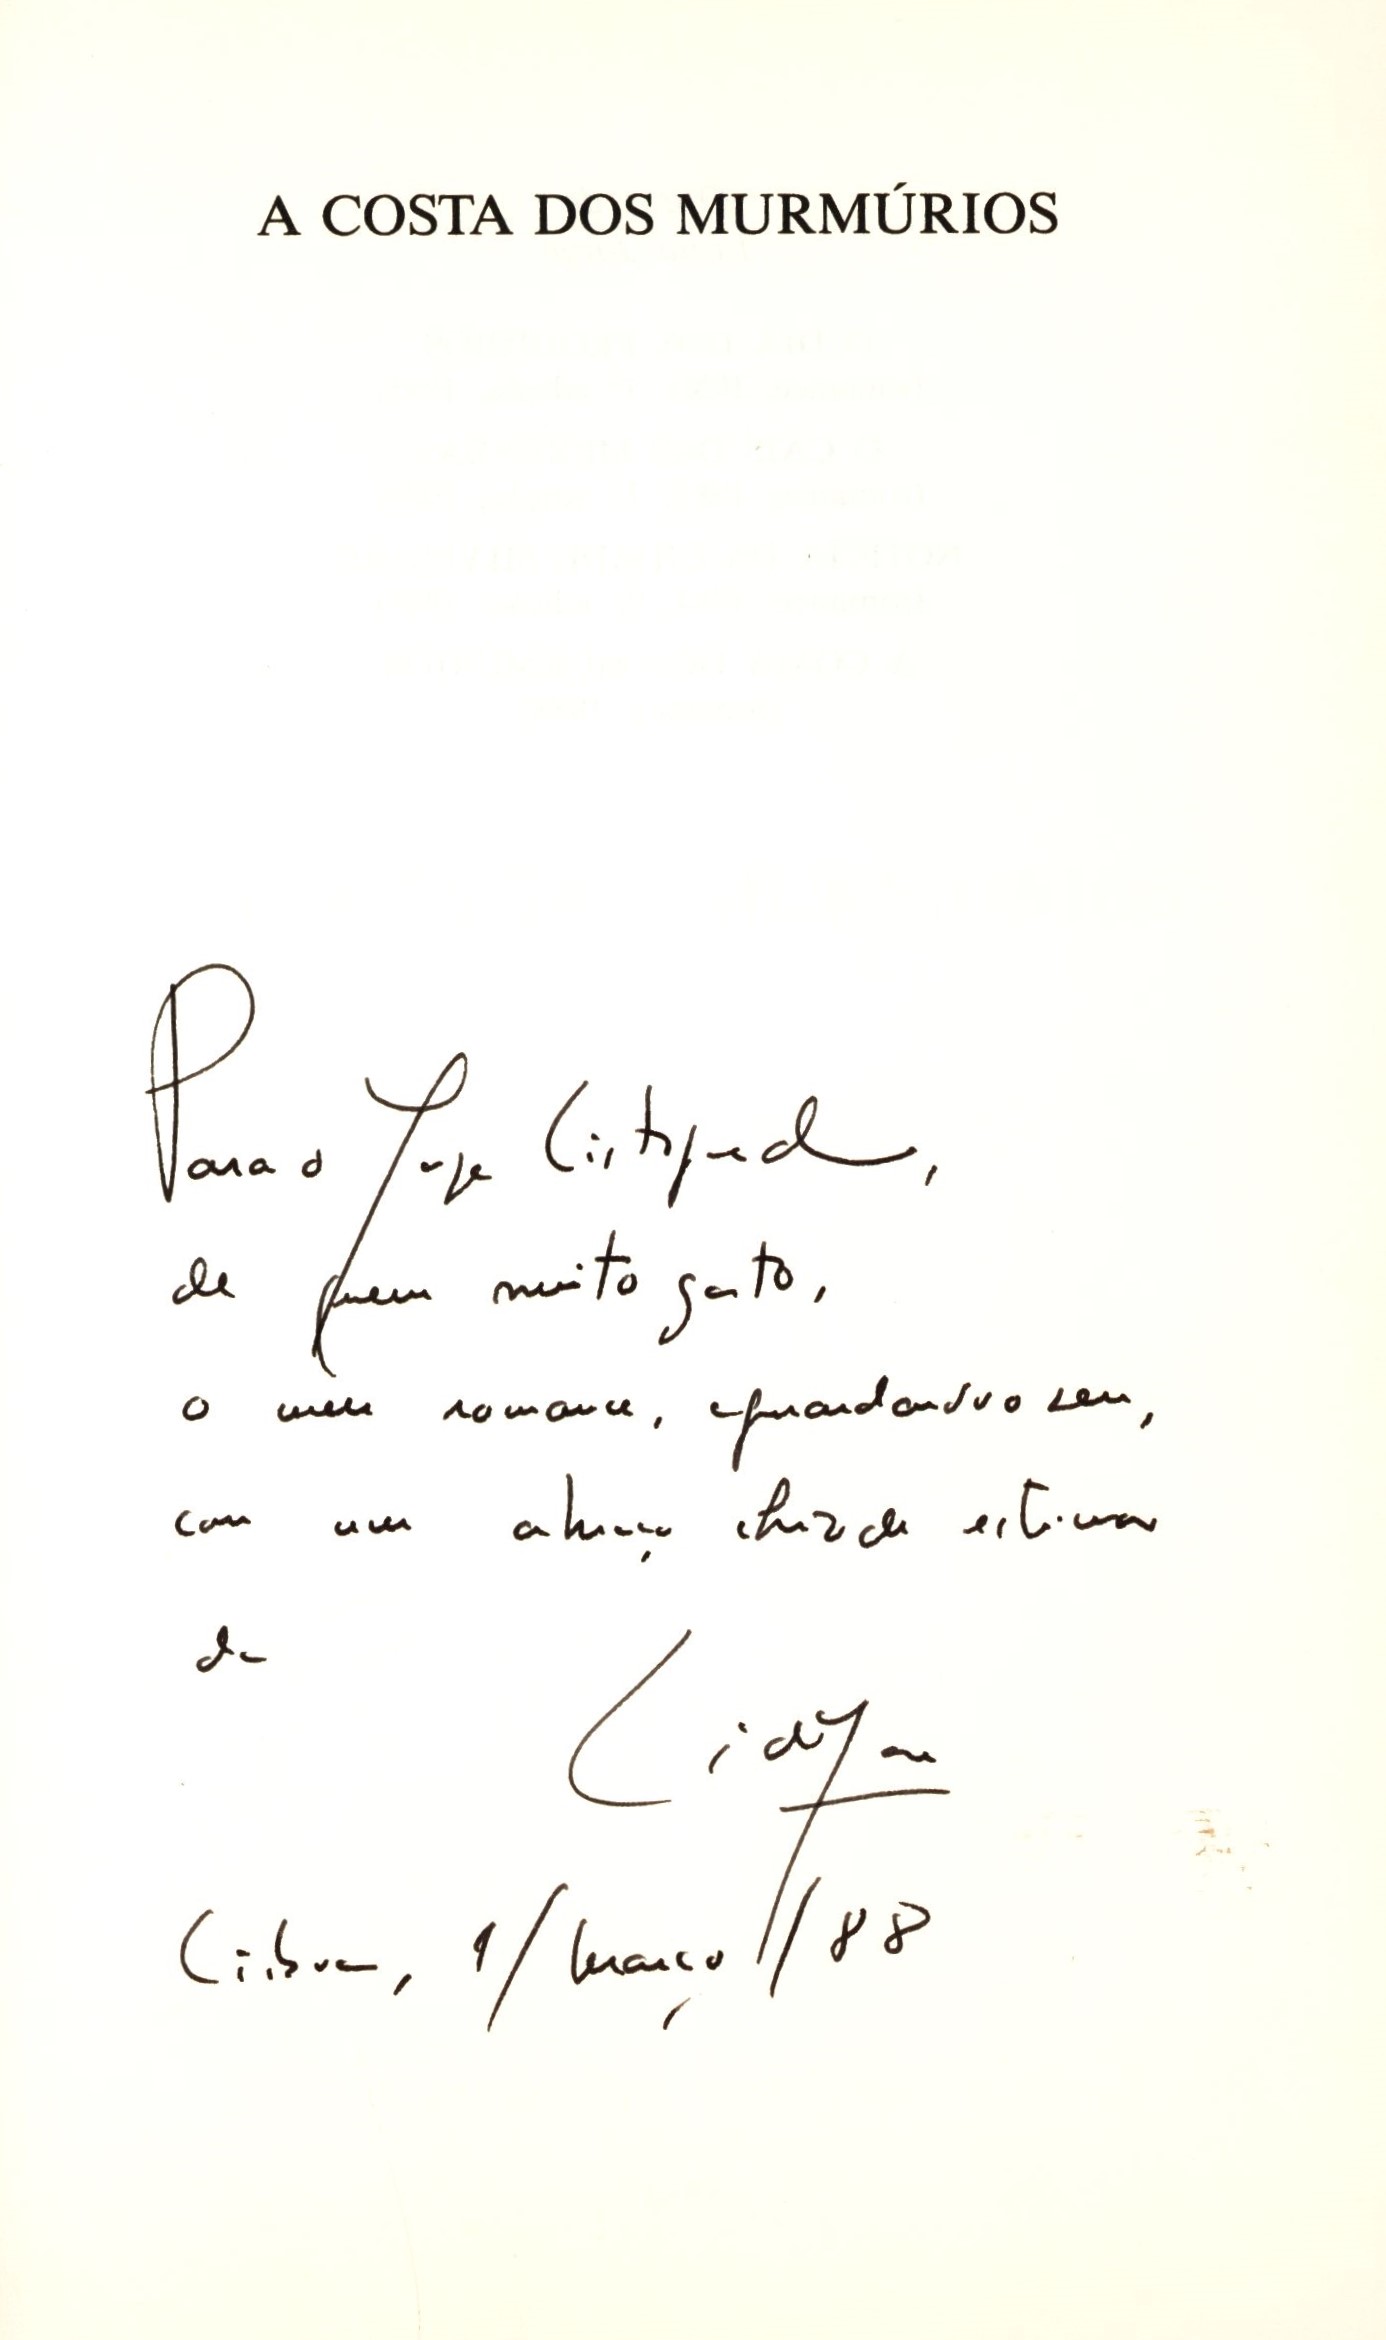 A COSTA DOS MURMÚRIOS
Para o Jorge Listopad,
de quem muito gosto,
o meu romance, aguardando o seu,
com um abraço cheio de estima
da
Lídia Jorge
Lisboa, 1/Março/88